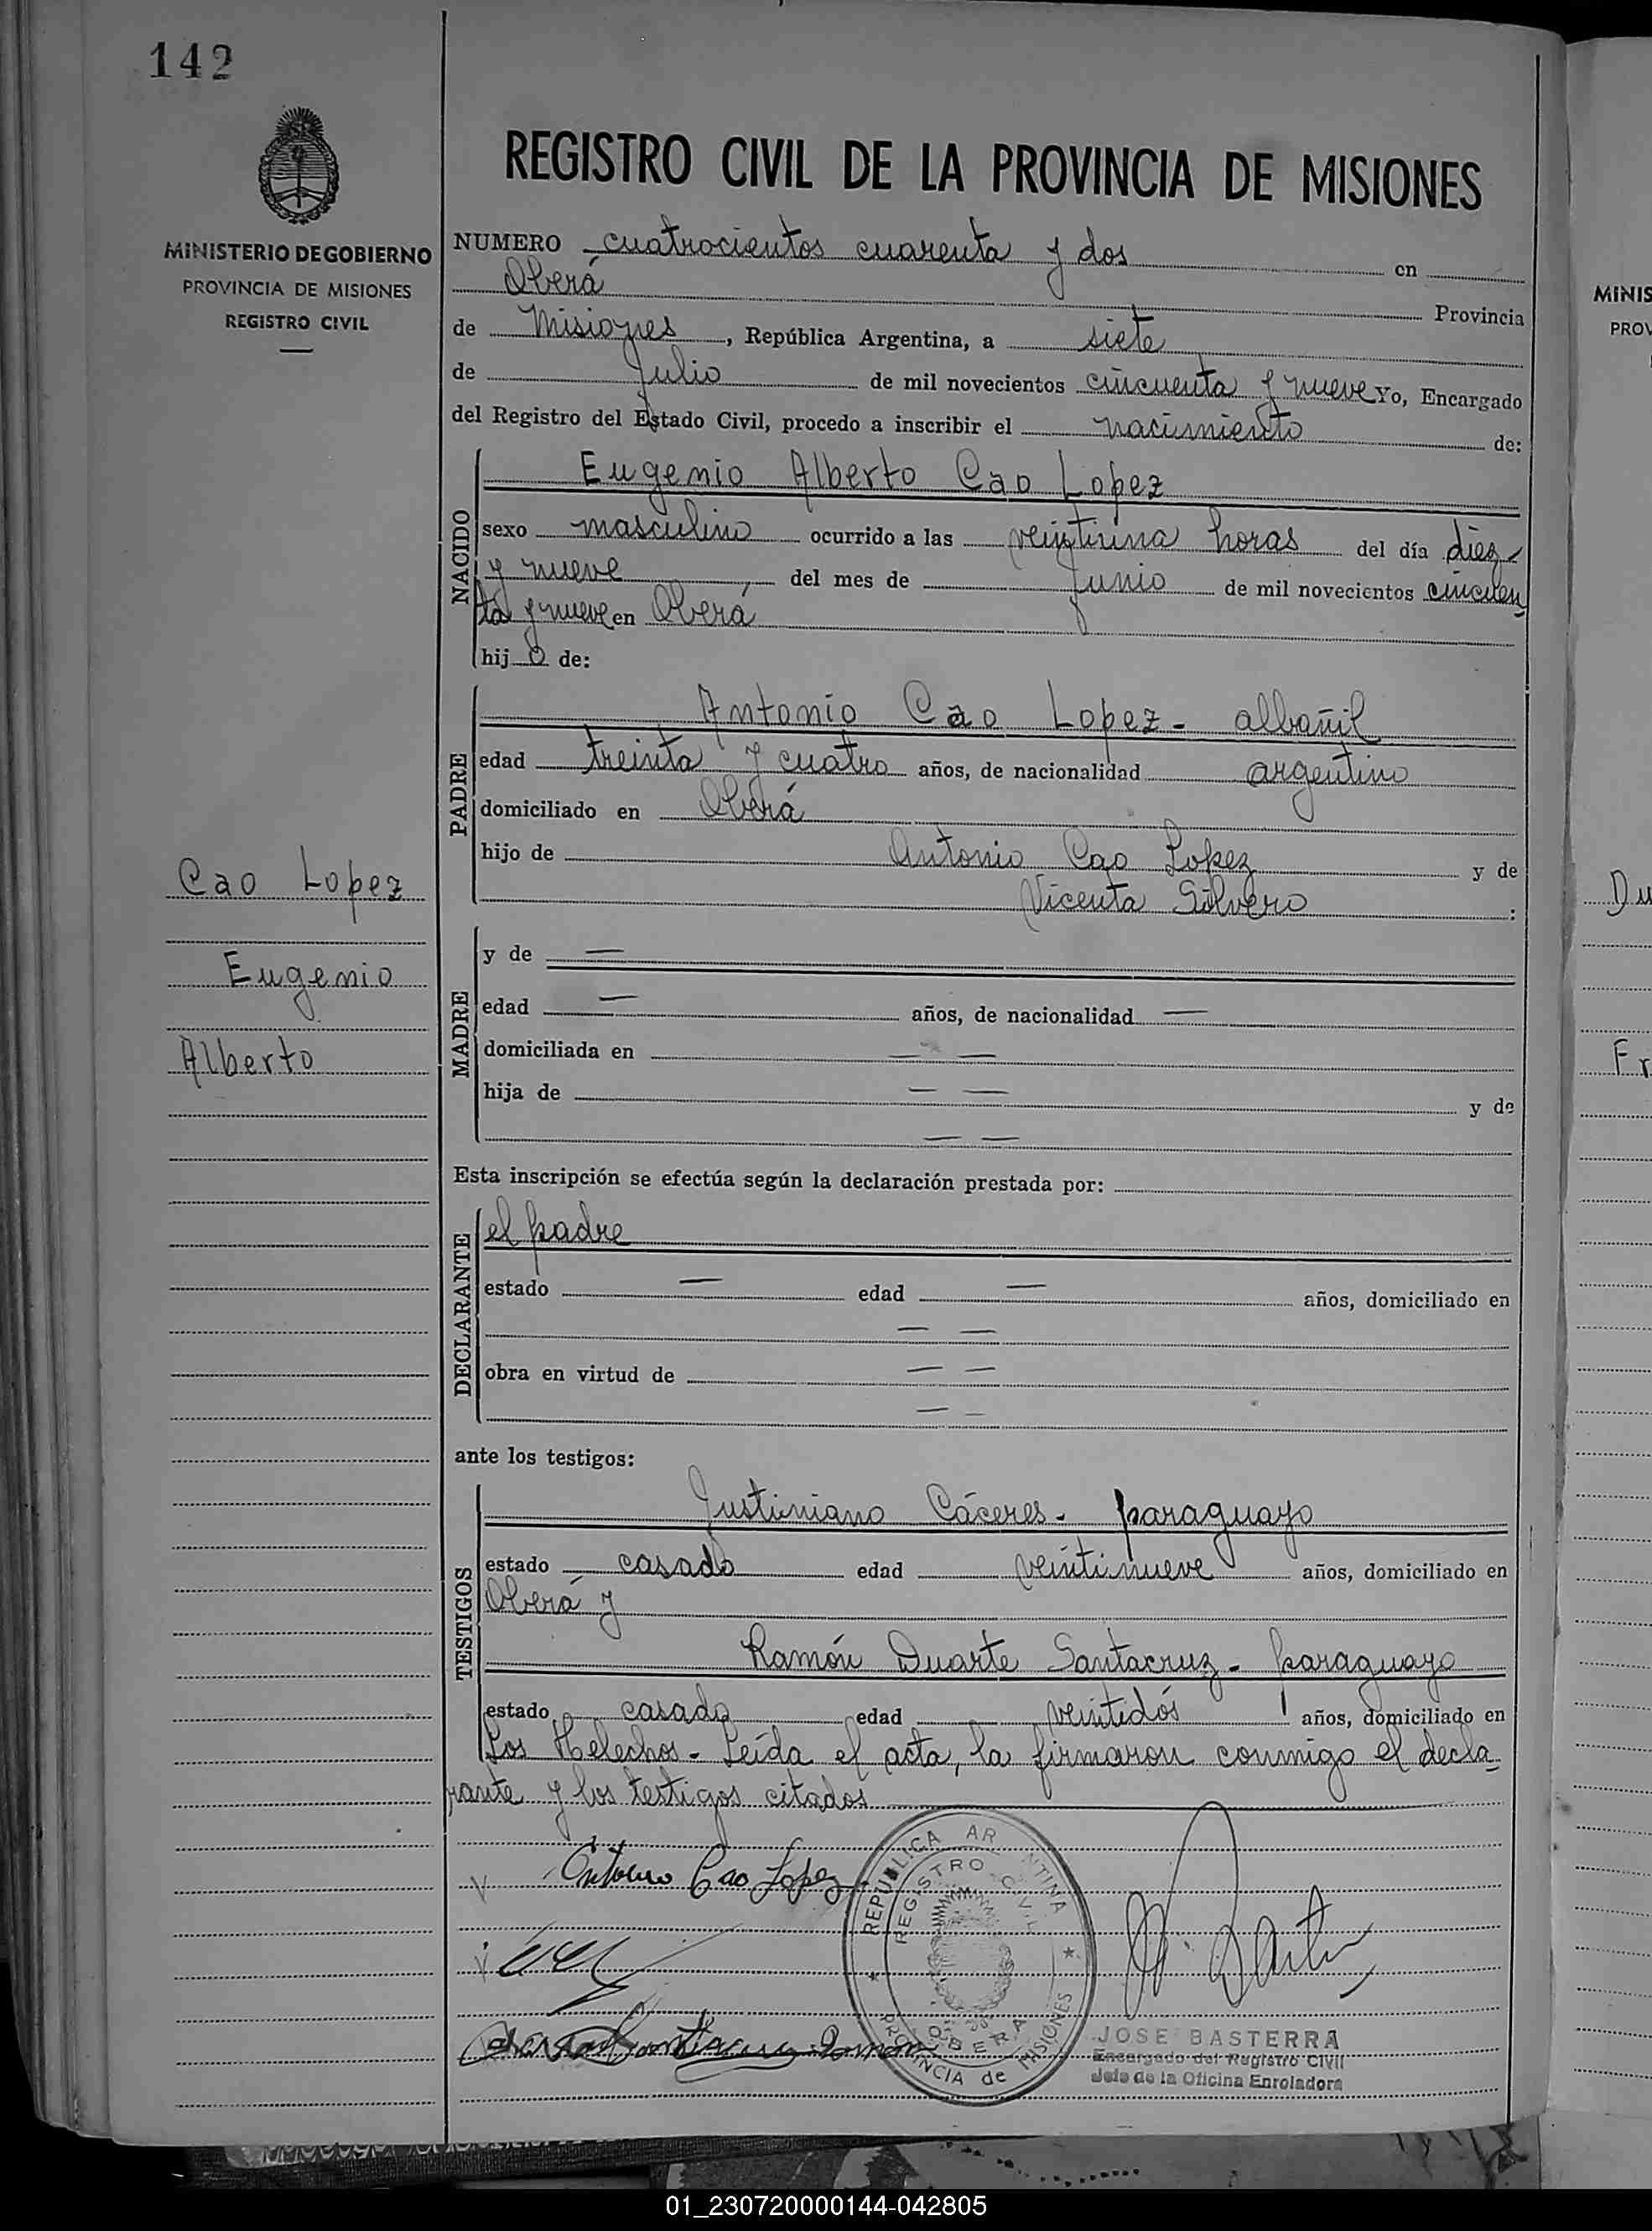 142
MINISTERIO DE GOBIERNO
PROVINCIA DE MISIONES
REGISTRO CIVIL
REGISTRO CIVIL DE LA PROVINCIA DE MISIONES
NUMERO cuatrocientos cuarenta y dos en
Oberá Provincia
de Misiones, República Argentina, a siete
de Julio de mil novecientos cincuenta y nueve Yo, Encargado
del Registro del Estado Civil, procedo a inscribir el nacimiento de:
NACIDO
Eugenio Alberto Cao Lopez
sexo masculino ocurrido a las veintiuna horas del día diez
y nueve, del mes de Junio de mil novecientos cincuen
ta y nueve en Oberá
hijo de:
PADRE
Antonio Cao Lopez - albañil
edad treinta y cuatro años, de nacionalidad argentino
domiciliado en Oberá
hijo de Antonio Cao Lopez y de
Vicenta Silvero :
MADRE
y de —
edad — años, de nacionalidad —
domiciliada en — —
hija de — — y de
— —
Esta inscripción se efectúa según la declaración prestada por:
DECLARANTE
el padre
estado — edad — años, domiciliado en
— —
obra en virtud de — —
— —
ante los testigos:
TESTIGOS
Justiniano Cáceres - paraguayo
estado casado edad veintinueve años, domiciliado en
Oberá y
Ramón Duarte Santacruz - paraguayo
estado casado edad veintidós años, domiciliado en
Los Helechos - Leída el acta, la firmaron conmigo el decla
rante y los testigos citados
Antonio Cao Lopez
REPUBLICA AR NTINA
REGISTRO CIVIL
OBERA
PROVINCIA de MISIONES
JOSE BASTERRA
Encargado del Registro Civil
Jefe de la Oficina Enroladora
Cao Lopez
Eugenio
Alberto
MINIS
PROV
Du
Fr
01_230720000144-042805